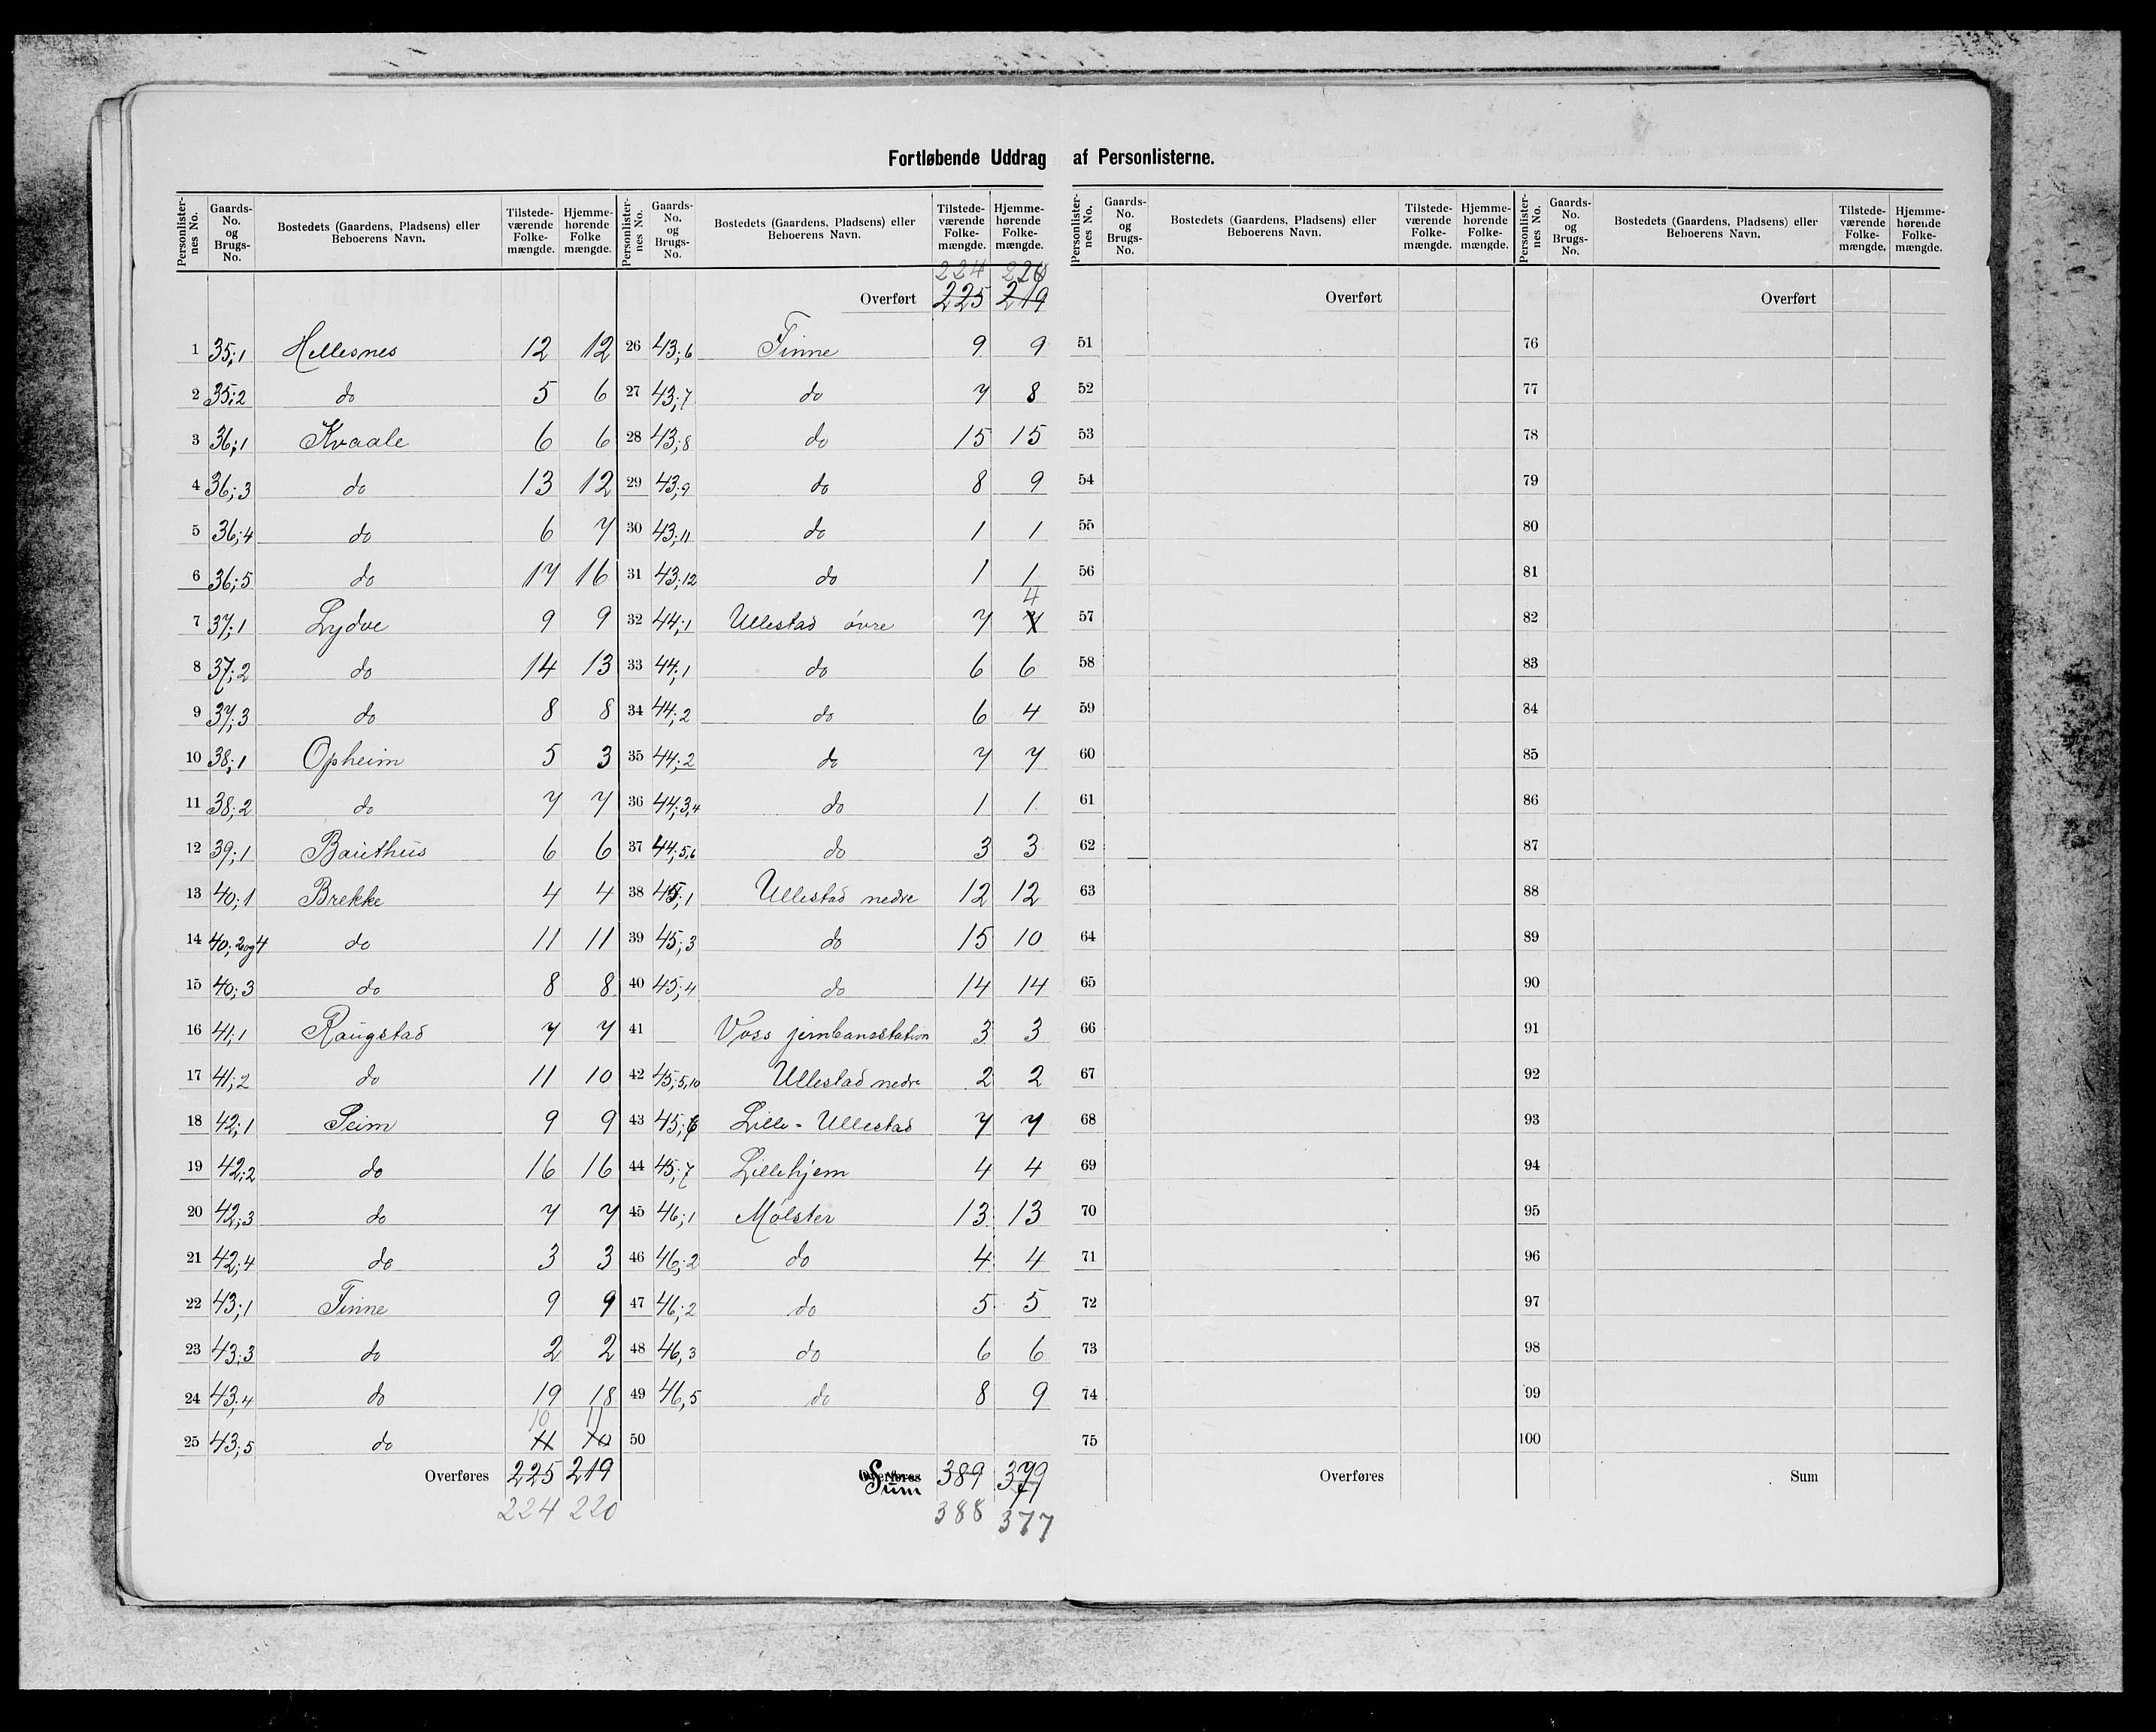 Fortløbende Uddrag af Personlisterne.
Personlister-nes No. | Gaards-No. og Brugs-No. | Bostedets (Gaardens, Pladsens) eller Beboerens Navn. | Tilstede-værende Folke-mængde. | Hjemme-hørende Folke mængde.
1 35;1 Hellesnes 12 12
2 35;2 do 5 6
3 36;1 Kvaale 6 6
4 36;3 do 13 12
5 36;4 do 6 7
6 36;5 do 17 16
7 37;1 Lydve 9 9
8 37;2 do 14 13
9 37;3 do 8 8
10 38;1 Opheim 5 3
11 38;2 do 7 7
12 39;1 Bauthus 6 6
13 40;1 Brekke 4 4
14 40;2og4 do 11 11
15 40;3 do 8 8
16 41;1 Raugstad 7 7
17 41;2 do 11 10
18 42;1 Seim 9 9
19 42;2 do 16 16
20 42;3 do 7 7
21 42;4 do 3 3
22 43;1 Finne 9 9
23 43;3 do 2 2
24 43;4 do 19 18
10 11
25 43;5 do 11 10
Overføres 225 219
224 220
Personlister-nes No. | Gaards-No. og Brugs-No. | Bostedets (Gaardens, Pladsens) eller Beboerens Navn. | Tilstede-værende Folke-mængde. | Hjemme-hørende Folke-mængde.
224 220
Overført 225 219
26 43;6 Finne 9 9
27 43;7 do 7 8
28 43;8 do 15 15
29 43;9 do 8 9
30 43;11 do 1 1
31 43;12 do 1 1
4
32 44;1 Ullestad øvre 7 7
33 44;1 do 6 6
34 44;2 do 6 4
35 44;2 do 7 7
36 44;3,4 do 1 1
37 44;5,6 do 3 3
38 45;1 Ullestad nedre 12 12
39 45;3 do 15 10
40 45;4 do 14 14
41 Voss jernbanestation 3 3
42 45;5,10 Ullestad nedre 2 2
43 45;6 Lille-Ullestad 7 7
44 45;7 Lillehjem 4 4
45 46;1 Mølster 13 13
46 46;2 do 4 4
47 46;2 do 5 5
48 46,3 do 6 6
49 46,5 do 8 9
50
Overføres Sum 389 379
388 377
Personlister-nes No. | Gaards-No. og Brugs-No. | Bostedets (Gaardens, Pladsens) eller Beboerens Navn. | Tilstede-værende Folke-mængde. | Hjemme-hørende Folke-mængde.
Overført
51
52
53
54
55
56
57
58
59
60
61
62
63
64
65
66
67
68
69
70
71
72
73
74
75
Overføres
Personlister-nes No. | Gaards-No. og Brugs-No. | Bostedets (Gaardens, Pladsens) eller Beboerens Navn. | Tilstede-værende Folke-mængde. | Hjemme-hørende Folke-mængde.
Overført
76
77
78
79
80
81
82
83
84
85
86
87
88
89
90
91
92
93
94
95
96
97
98
99
100
Sum